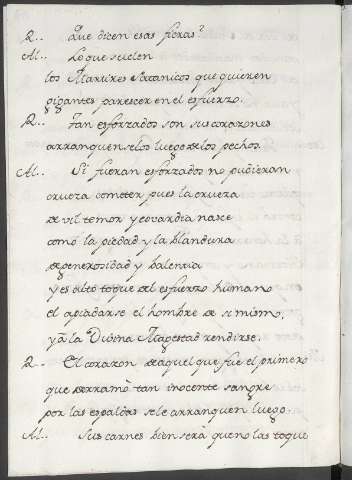 R.. Que dicen esas fieras?
Al.. Lo que suelen
los Martires Satanicos que quieren
gigantes parescer en el esfuerzo.
R.. Tan esforzados son sus corazones
arranquenselos luego de los pechos.
Al.. Si fueran esforzados no pudieran
crueza cometer pues la crueza
de vil temor y covardia nasce
como la piedad y la blandura
de generosidad y valentia
y es alto toque del esfuerzo humano
el apiadarse el hombre de si mismo,
y à la Divina Magestad rendirse.
R.. El corazon de aquel que fue el primero
que derramò tan inocente sangre
por las espaldas se le arranquen luego.
Al.. Sus carnes bien serà que no las toque